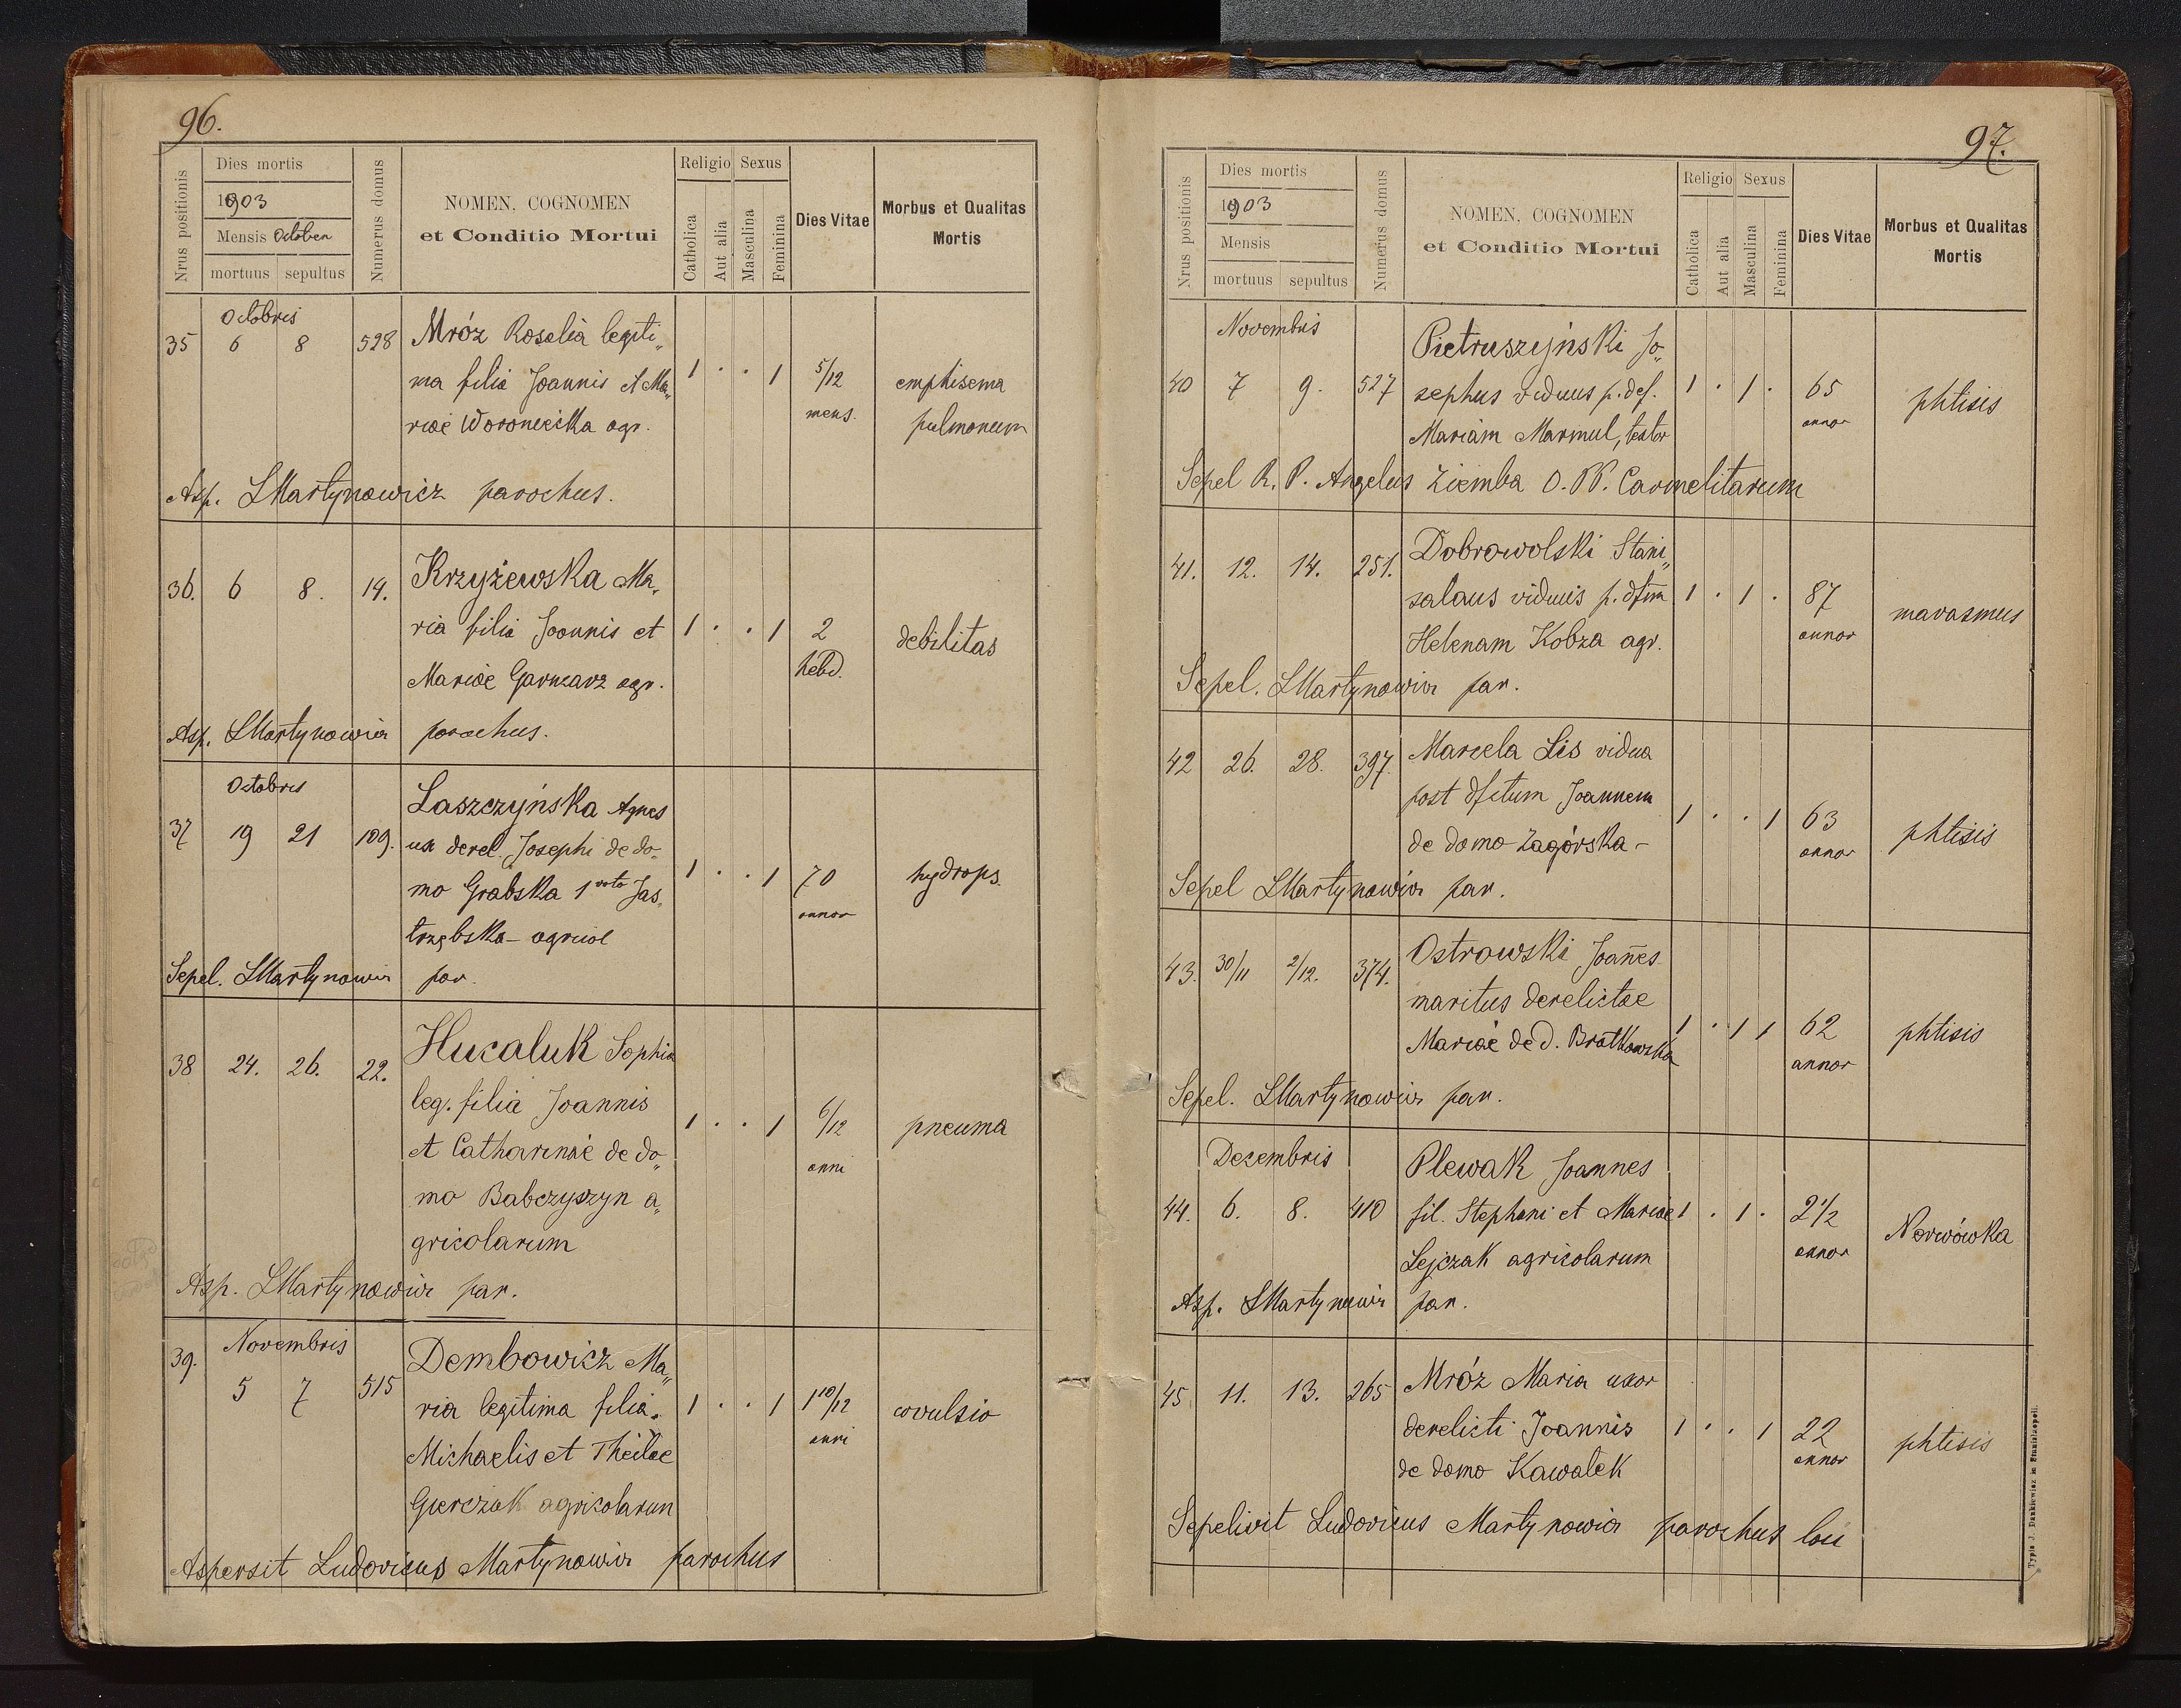 96.
Nrus positionis
Dies mortis
1903
Mensis October
mortuus sepultus
Numerus domus
NOMEN, COGNOMEN
et Conditio Mortui
Religio Sexus
Catholica
Aut alia
Masculina
Feminina
Dies Vitae
Morbus et Qualitas
Mortis
Octobris
35 6 8 528 Mróz Rosalia legiti„
ma filia Joannis et Ma„ 1 . . 1 5/12 emphisema
riae Woroniecka agr. mens. pulmoneum
Asp. LMartynowicz parochus.
36. 6 8. 14. Krzyżewska Ma„
ria filia Joannis et 1 . . 1 2 debilitas
Mariae Garncarz agr. hebd.
Asp. LMartynowicz parochus.
Octobris
37 19 21 109. Laszczyńska Agnes
ux derel. Josephi de do„
mo Grabska 1 voto Jas„ 1 . . 1 70 hydrops.
trzębska - agricol annor
Sepel. LMartynowicz par.
38 24. 26. 22. Hucaluk Sophia
leg. filia Joannis
et Catharinae de do„ 1 . . 1 6/12 pneuma
mo Babczyszyn a„ anni
gricolarum
Asp. LMartynowicz par.
39. Novembris
5 7 515 Dembowicz Ma„
ria legitima filia 1 . . 1 1 10/12 covulsio
Michaelis et Theilae anni
Gierczak agricolarum
Aspersit Ludovicus Martynowicz parochus
97.
Nrus positionis
Dies mortis
1903
Mensis
mortuus sepultus
Numerus domus
NOMEN, COGNOMEN
et Conditio Mortui
Religio Sexus
Catholica
Aut alia
Masculina
Feminina
Dies Vitae
Morbus et Qualitas
Mortis
Novembris
Pietruszyński Jo„
40 7 9. 527 sephus viduus p. def. 1 . 1 . 65 phtisis
Mariam Marmul, textor annor
Sepel R. P. Angelus Ziemba O. PP. Carmelitarum
41. 12. 14. 251. Dobrowolski Stani„
salaus viduus p. dftm 1 . 1 . 87 marasmus
Helenam Kobza agr. annor
Sepel. LMartynowicz par.
42 26. 28. 397. Marcela Lis vidua
post dfctum Joannem 1 . . 1 63 phtisis
de domo Zagórska - annor
Sepel LMartynowicz par.
43. 30/11 2/12. 374. Ostrowski Joañes
maritus derelictae
Mariae de d. Bratkowska 1 . 1 1 62 phtisis
annor
Sepel. LMartynowicz par.
Decembris
Plewak Joannes
44. 6. 8. 410 fil. Stephani et Mariae 1 . 1 . 2 1/2 Norwówka
Lejczak agricolarum annor
Asp. LMartynowicz par.
45 11. 13. 265 Mróz Maria uxor
derelicti Joannis 1 . . 1 22 phtisis
de domo Kawałek annor
Sepelivit Ludovicus Martynowicz parochus loci
Typis J. Dankiewicz in Stanislaopoli.